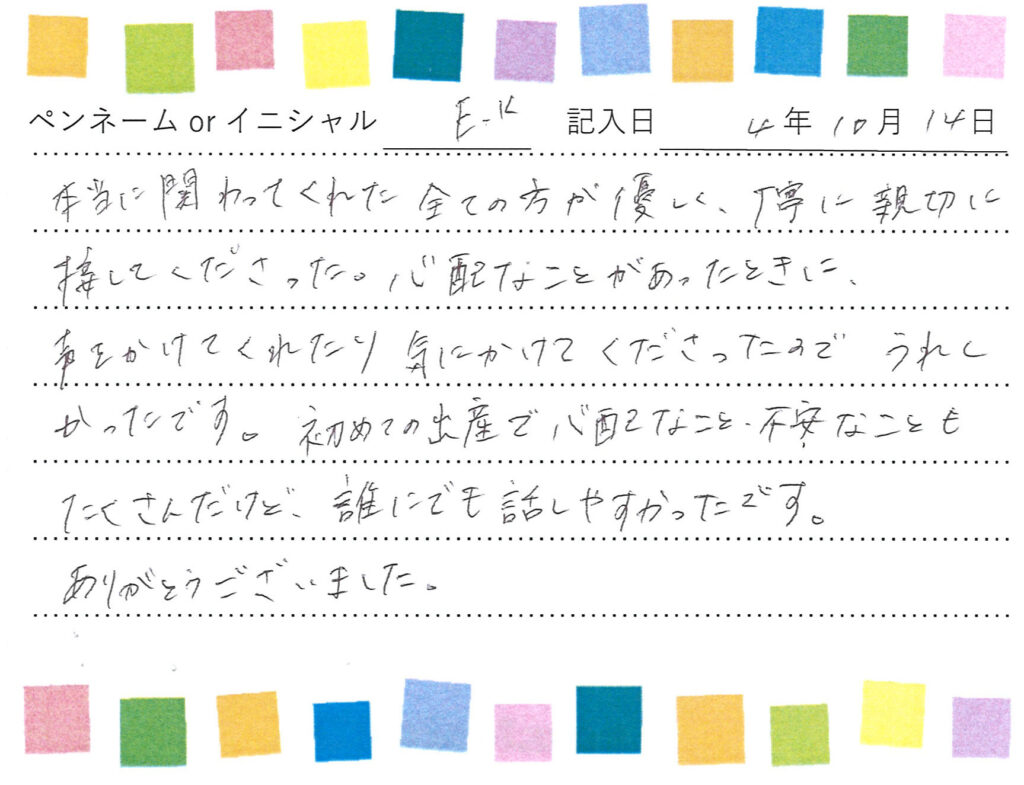 ペンネーム or イニシャル E-K 記入日 4年10月14日
本当に関わってくれた全ての方が優しく、丁寧に親切に
接してくださった。心配なことがあったときに、
声をかけてくれたり気にかけてくださったので うれし
かったです。初めての出産で心配なこと・不安なことも
たくさんだけど、誰にでも話しやすかったです。
ありがとうございました。